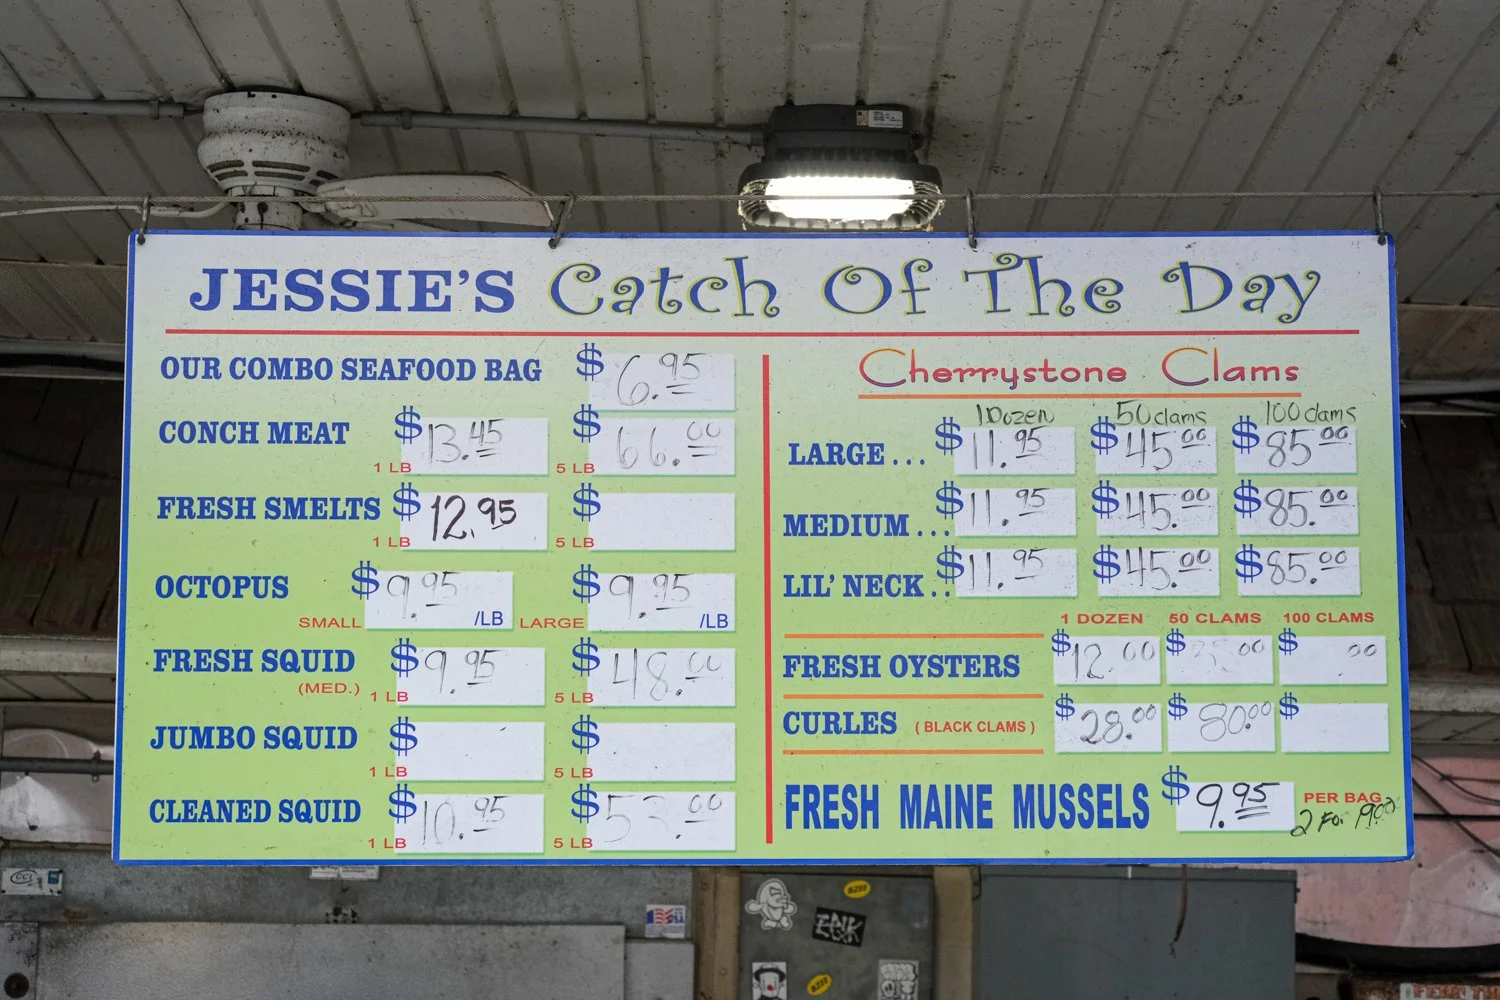 JESSIE'S Catch Of The Day
OUR COMBO SEAFOOD BAG $ 6.95
CONCH MEAT 1 LB $ 13.45 5 LB $ 66.00
FRESH SMELTS 1 LB $ 12.95 5 LB $
OCTOPUS SMALL $ 9.95 /LB LARGE $ 9.95 /LB
FRESH SQUID (MED.) 1 LB $ 9.95 5 LB $ 48.00
JUMBO SQUID 1 LB $ 5 LB $
CLEANED SQUID 1 LB $ 10.95 5 LB $ 52.00
Cherrystone Clams
1 Dozen 50 clams 100 clams
LARGE... $ 11.95 $ 45.00 $ 85.00
MEDIUM... $ 11.95 $ 45.00 $ 85.00
LIL' NECK.. $ 11.95 $ 45.00 $ 85.00
1 DOZEN 50 CLAMS 100 CLAMS
FRESH OYSTERS $ 12.00 $ $ .00
CURLES (BLACK CLAMS) $ 28.00 $ 80.00 $
FRESH MAINE MUSSELS $ 9.95 PER BAG
2 For 19.00
BZEE
BZEE